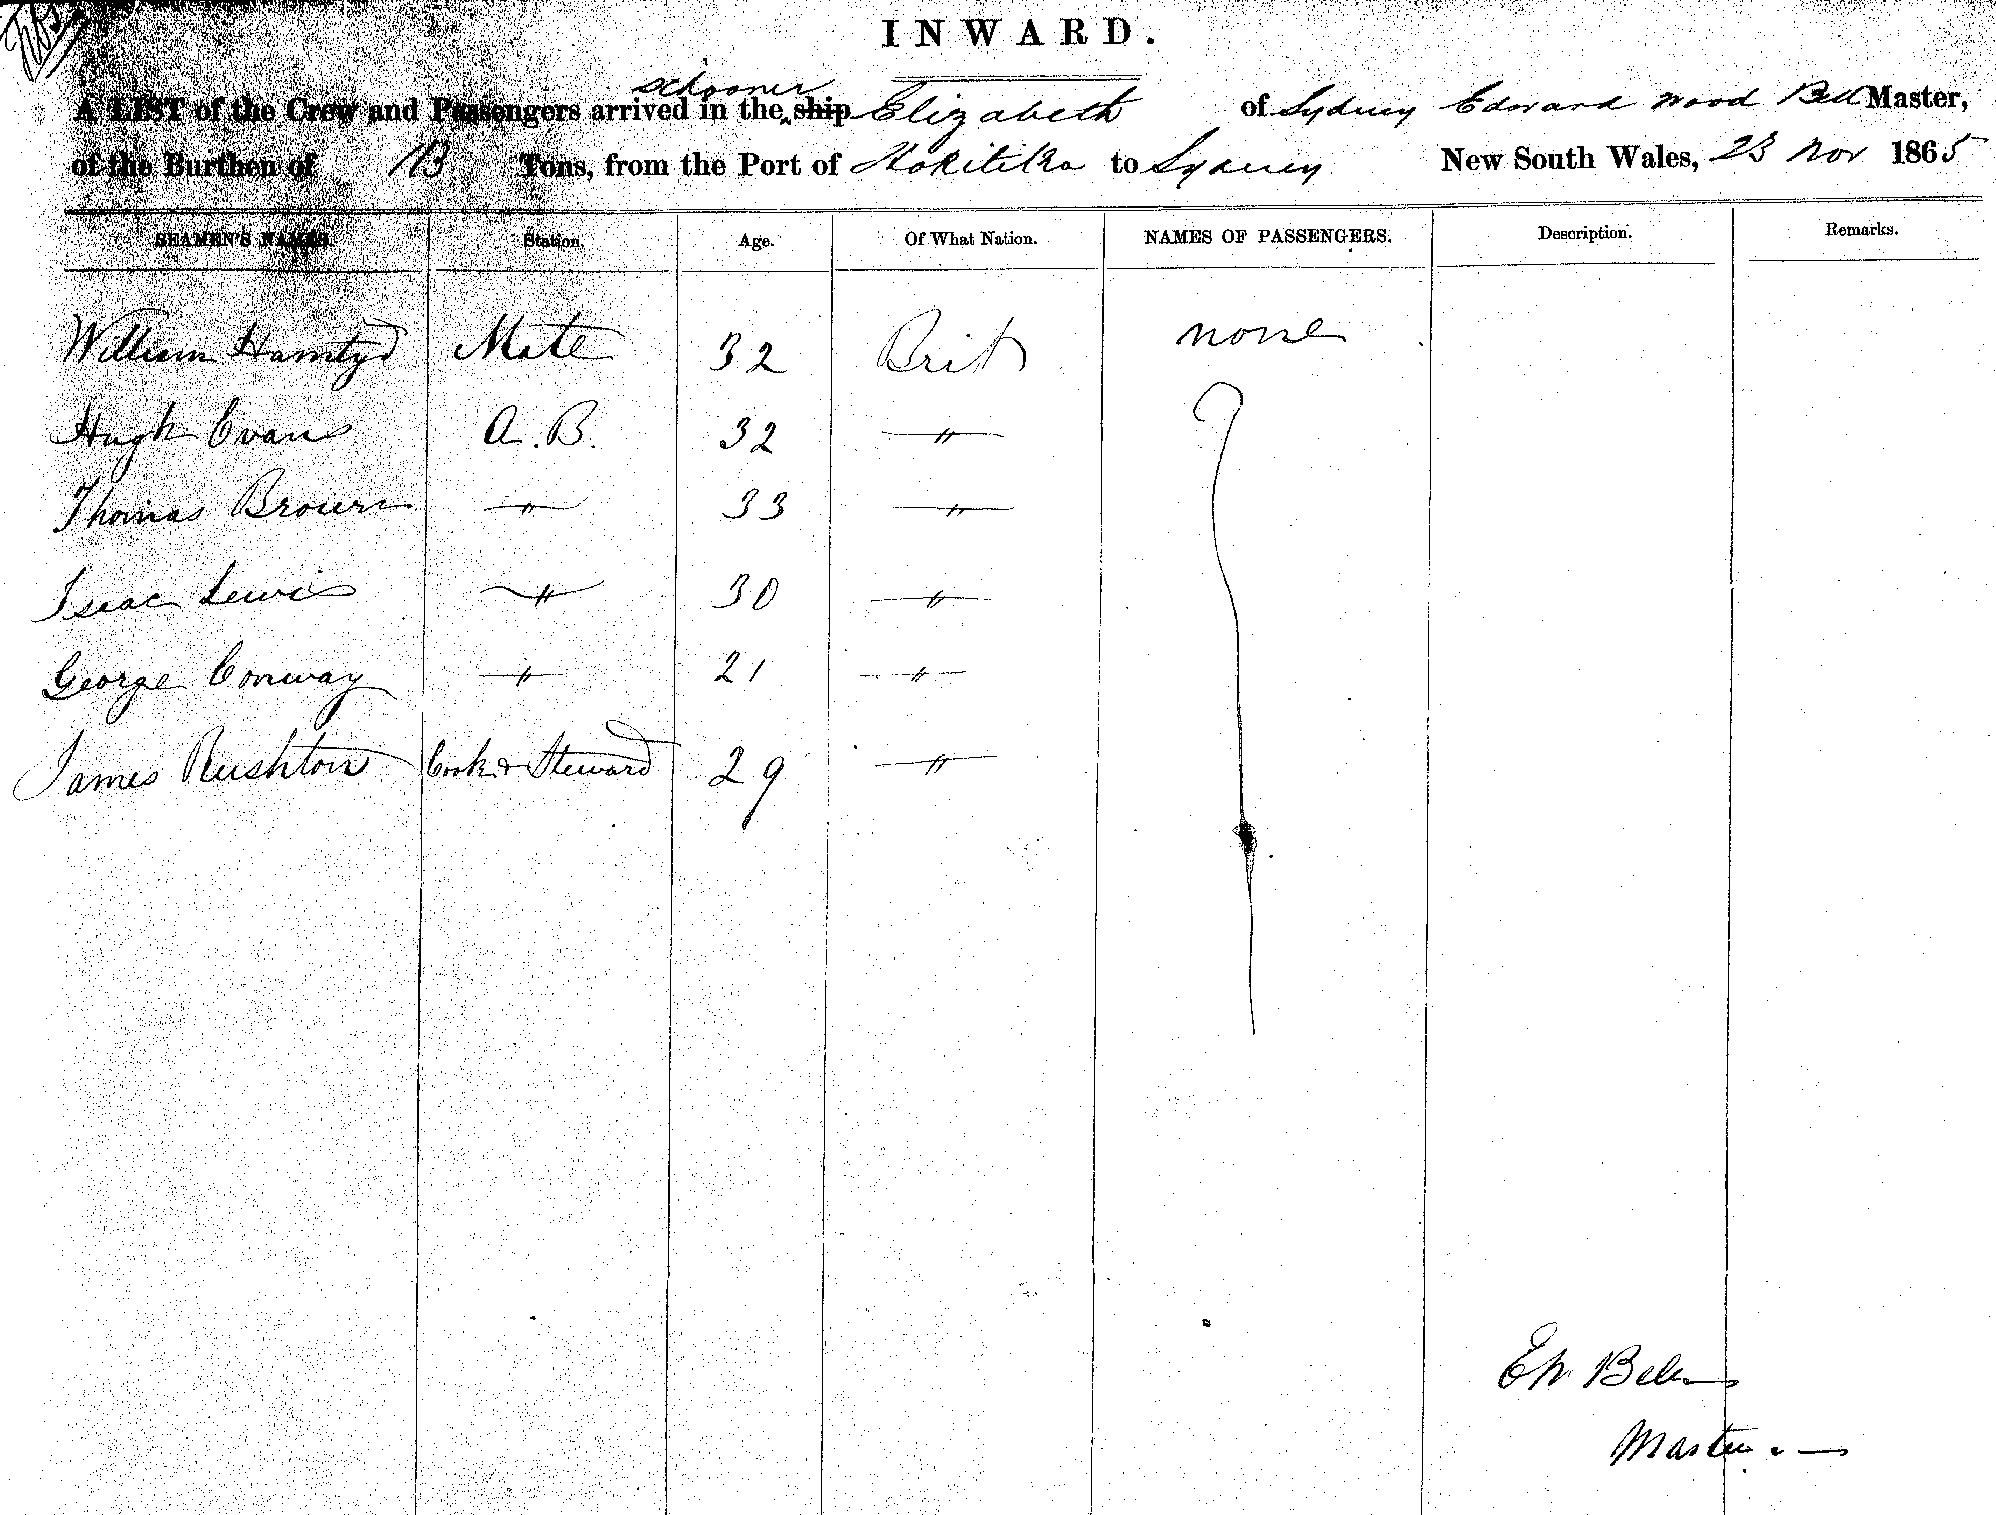 INWARD.
schooner
A LIST of the Crew and Passengers arrived in the ship Elizabeth of Sydney Edward Wood Bell Master,
of the Burthen of 113 Tons, from the Port of Hokitika to Sydney New South Wales, 23 Nov 1865
SEAMEN'S NAMES. Station. Age. Of What Nation. NAMES OF PASSENGERS. Description. Remarks.
William Mate 32 Brit none
Hugh Evans A.B. 32 "
Thomas Brown " 33 "
Isaac Lewis " 30 "
George Conway " 21 "
James Rushton Cook & Steward 29 "
EW Bell
Master